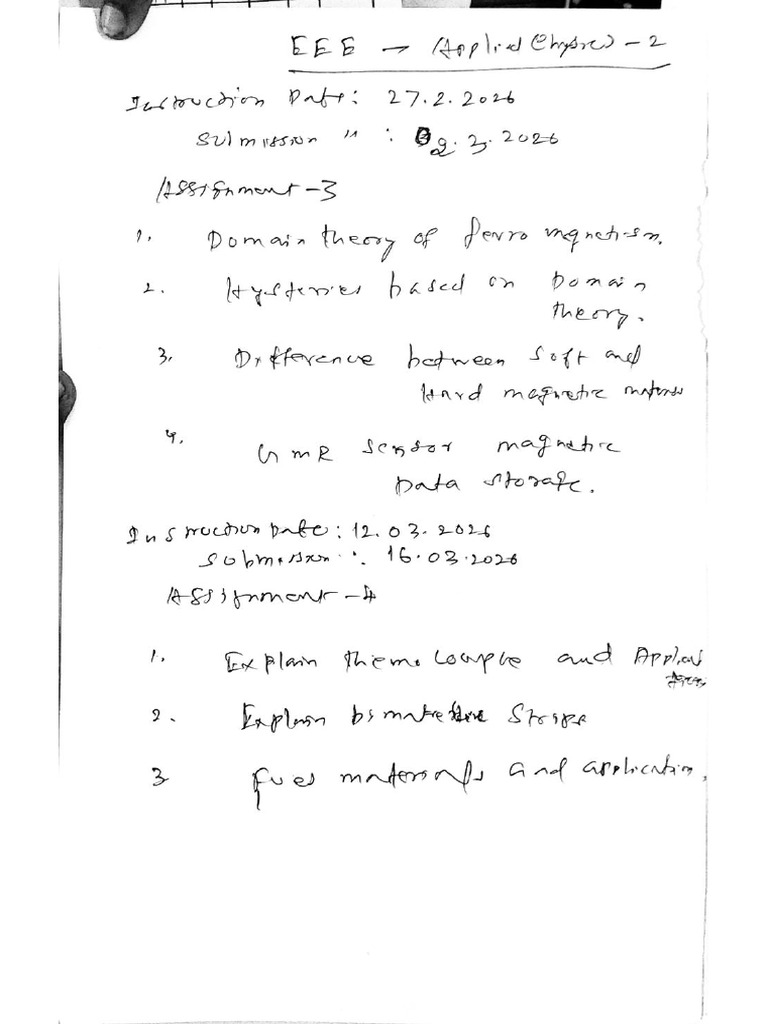 EEE → (Applied Physics) - 2
Instruction Date: 27.2.2026
Submission " : 02.3.2026
Assignment - 3
1. Domain theory of ferro magnetism.
2. Hysterries based on Domain
theory.
3. Difference between soft and
Hard magnetic
4. GMR Sensor magnetic
Data storage.
Instruction Date: 12.03.2026
Submission : 16.03.2026
Assignment - 4
1. Explain themo couple and
2. Explain Strips
3 fues materials and application,